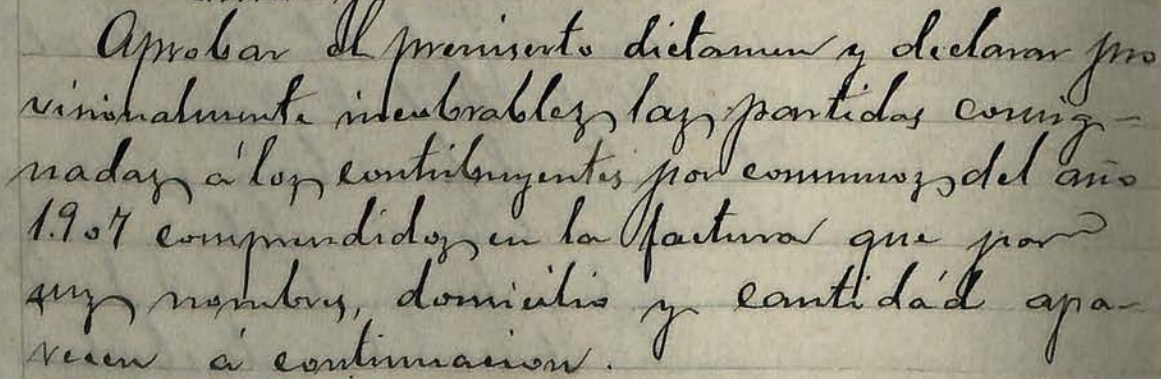 Aprobar el preinserto dictamen y declarar pro
visionalmente incobrables las partidas consig-
nadas á los contribuyentes por consumos del año
1.907 comprendidos en la factura que por
sus nombres, domicilio y cantidád apa-
recen á continuacion.